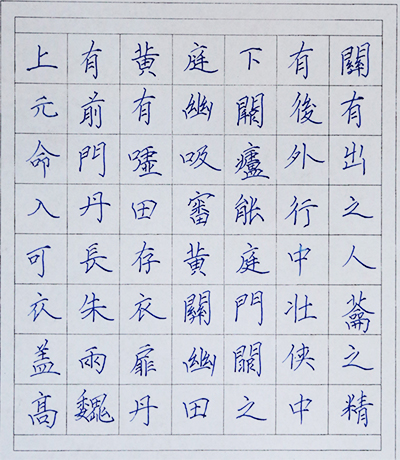 上有黃庭下有關
元前有幽闕後有
命門噓吸廬外出
入丹田審能行之
可長存黃庭中人
衣朱衣關門壯蘥
盖兩扉幽闕俠之
髙巍丹田之中精